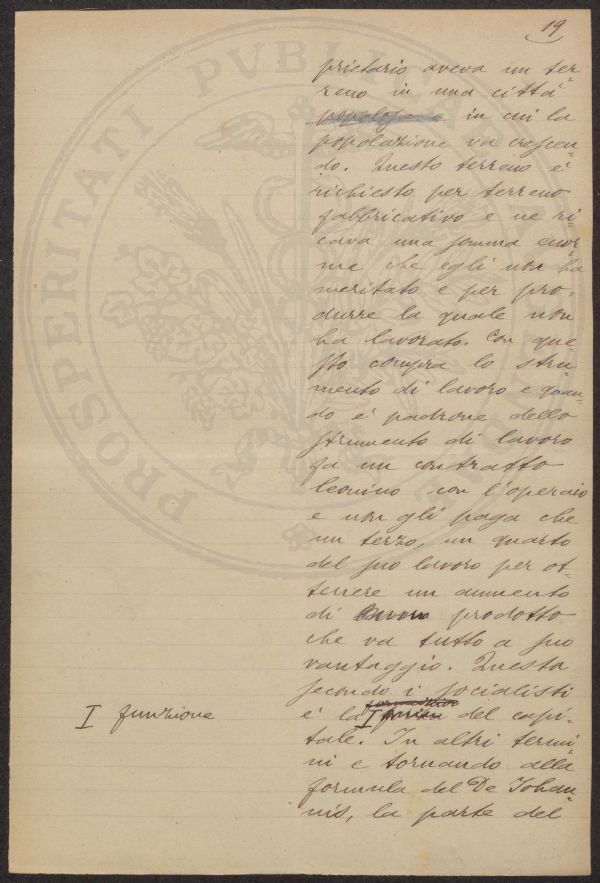 19
prietario aveva un ter-
reno in una città
in cui la
popolazione va crescen-
do. Questo terreno è
richiesto per terreno
fabbricativo e ne ri-
cava una somma enor-
me che egli non ha
meritato e per pro-
durre la quale non
ha lavorato. Con que-
sto compra lo stru-
mento di lavoro e quan-
do è padrone dello
strumento di lavoro
fa un contratto
leonino con l'operaio
e non gli paga che
un terzo, un quarto
del suo lavoro per ot-
tenere un aumento
di prodotto
che va tutto a suo
vantaggio. Questa
secondo i socialisti
è la I del capi-
I funzione
tale. In altri termi-
ni e tornando alla
formula del De Johan-
nis, la parte del
PROSPERITATI PVBLIC